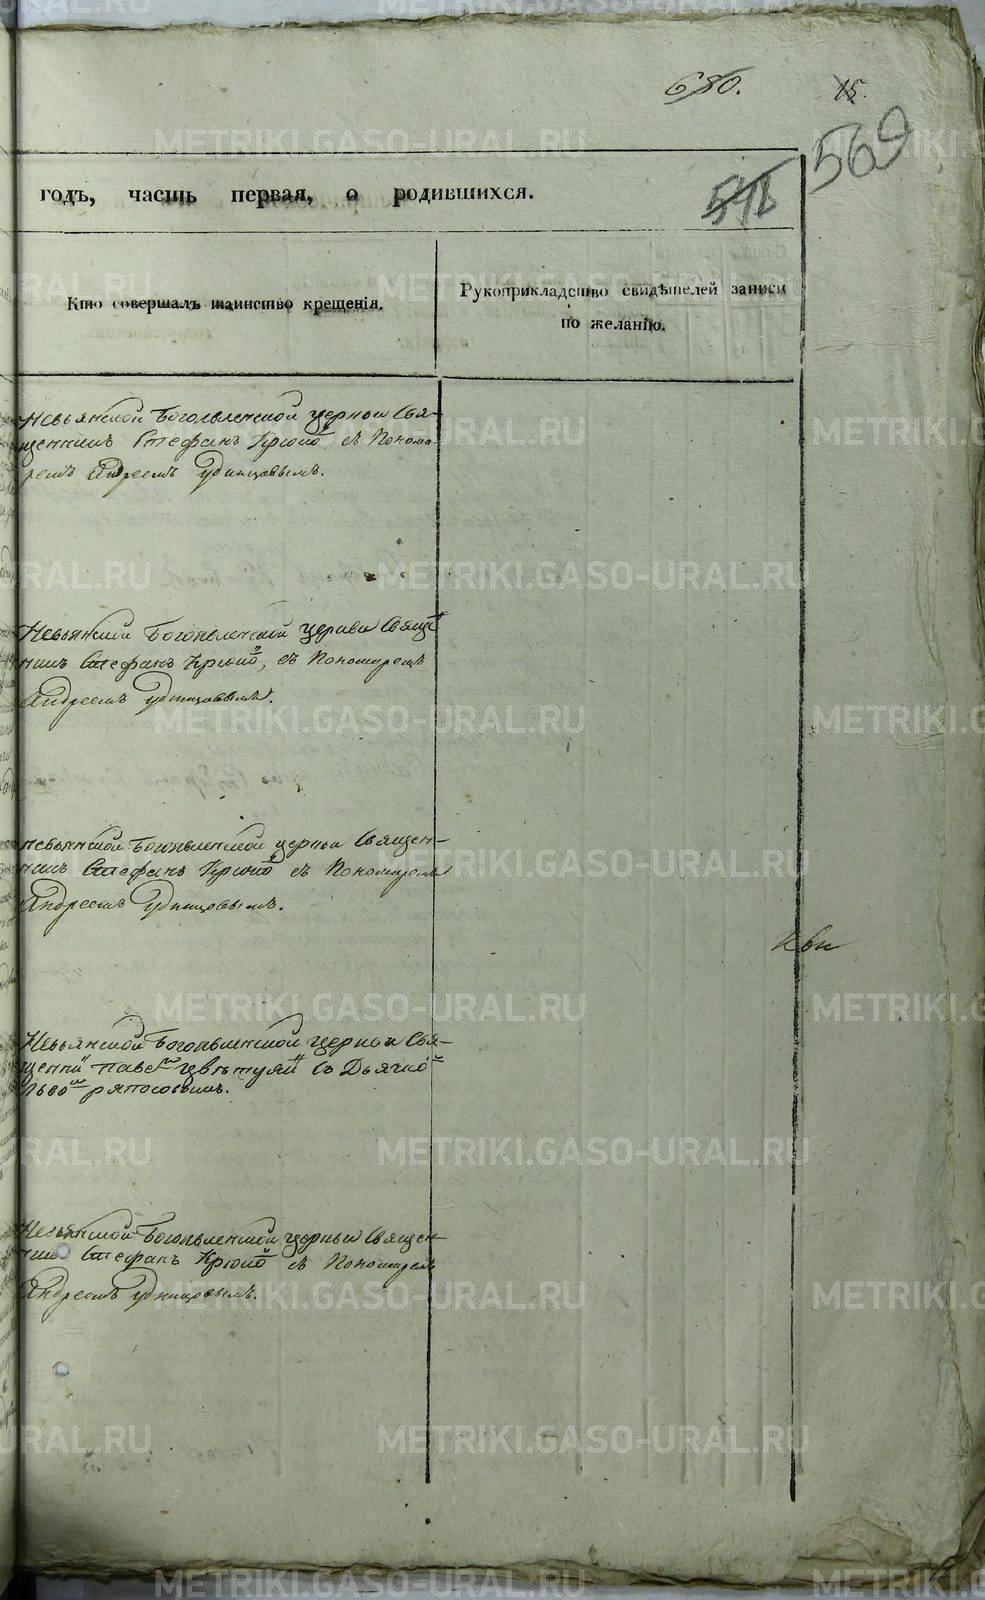 680.
15.
569
годъ, часть первая, о родившихся.
Кто совершалъ таинство крещенія.
Рукоприкладство свидѣтелей записи
по желанію.
Невьянской Богоявленской церкви Свя-
щенникъ Стефанъ съ Понома-
ремъ Андреемъ Удинцовымъ.
Невьянской Богоявленской церкви Свящ
никъ Стефанъ съ Пономаремъ
Андреемъ Удинцовымъ.
Невьянской Богоявленской церкви Священ-
никъ Стефанъ съ Пономаремъ
Андреемъ Удинцовымъ.
Невьянской Богоявленской церкви Свя-
съ
Невьянской Богоявленской церкви Священ-
никъ Стефанъ съ Пономаремъ
Андреемъ Удинцовымъ.
METRIKI.GASO-URAL.RU